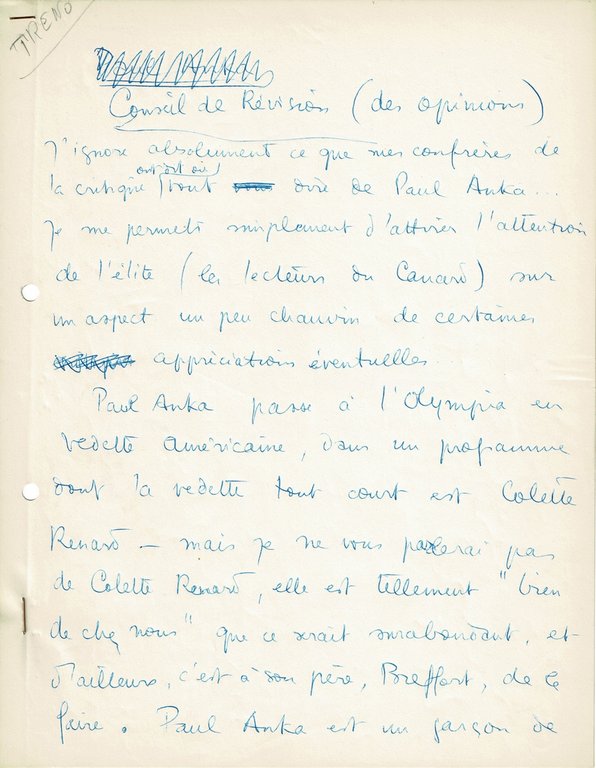 TRENO
Conseil de Révision (des opinions)
J'ignore absolument ce que mes confrères de
ont dit ou
la critique vont dire de Paul Anka...
Je me permets simplement d'attirer l'attention
de l'élite (les lecteurs du Canard) sur
un aspect un peu chauvin de certaines
appréciations éventuelles...
Paul Anka passe à l'Olympia en
vedette américaine, dans un programme
dont la vedette tout court est Colette
Renard — mais je ne vous parlerai pas
de Colette Renard, elle est tellement "bien
de chez nous" que ce serait surabondant, et
d'ailleurs, c'est à son père, Breffort, de le
faire. Paul Anka est un garçon de